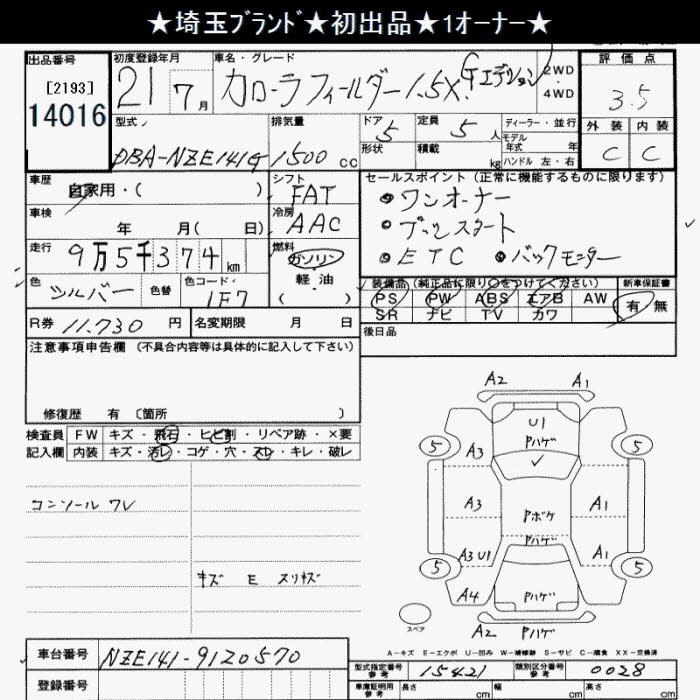 ★埼玉ﾌﾞﾗﾝﾄﾞ★初出品★1オーナー★
出品番号
[2193]
14016
初度登録年月
21 7月
車名・グレード
カローラフィールダー1.5X Gエディション
2WD
4WD
評価点
3.5
外装 内装
C C
型式
DBA-NZE141G
排気量
1500 cc
ドア 5
形状
定員 5 人
積載 kg
ディーラー・並行
モデル年式 年
ハンドル 左・右
車歴
自家用・( )
シフト
FAT
車検
年 月( 日)
冷房
AAC
走行
9万5千374km
燃料
ガソリン
軽・油
( )
色
シルバー
色替
色コード
1F7
セールスポイント (正常に機能するものに限ります)
ワンオーナー
プッシュスタート
ETC バックモニター
装備品(純正品に限り○をつけてください)
PS PW ABS エアB AW
SR ナビ TV カワ
新車保証書
有・無
R券 11.730 円
名変期限 月 日
後日品
注意事項申告欄 (不具合内容等は具体的に記入して下さい)
修復歴 有 〔箇所 〕
検査員 FW キズ・飛石・ヒビ割・リペア跡・×要
記入欄 内装 キズ・汚レ・コゲ・穴・スレ・キレ・破レ
コンソールワレ
キズ E スリキズ
A2 A1
U1
Pハゲ
5 5
A3
A3 Pボケ A1
Pハゲ
A3 U1 A1
5 5
A4 Pハゲ
スペア
A2 Pハゲ
A-キズ E-エクボ U-凹み W-補修跡 S-サビ C-腐食 XX-交換済
車台番号 NZE141-9120570
登録番号
型式指定番号 参考 15421
類別区分番号 参考 0028
車庫証明用 参考 長さ cm 幅 cm 高さ cm